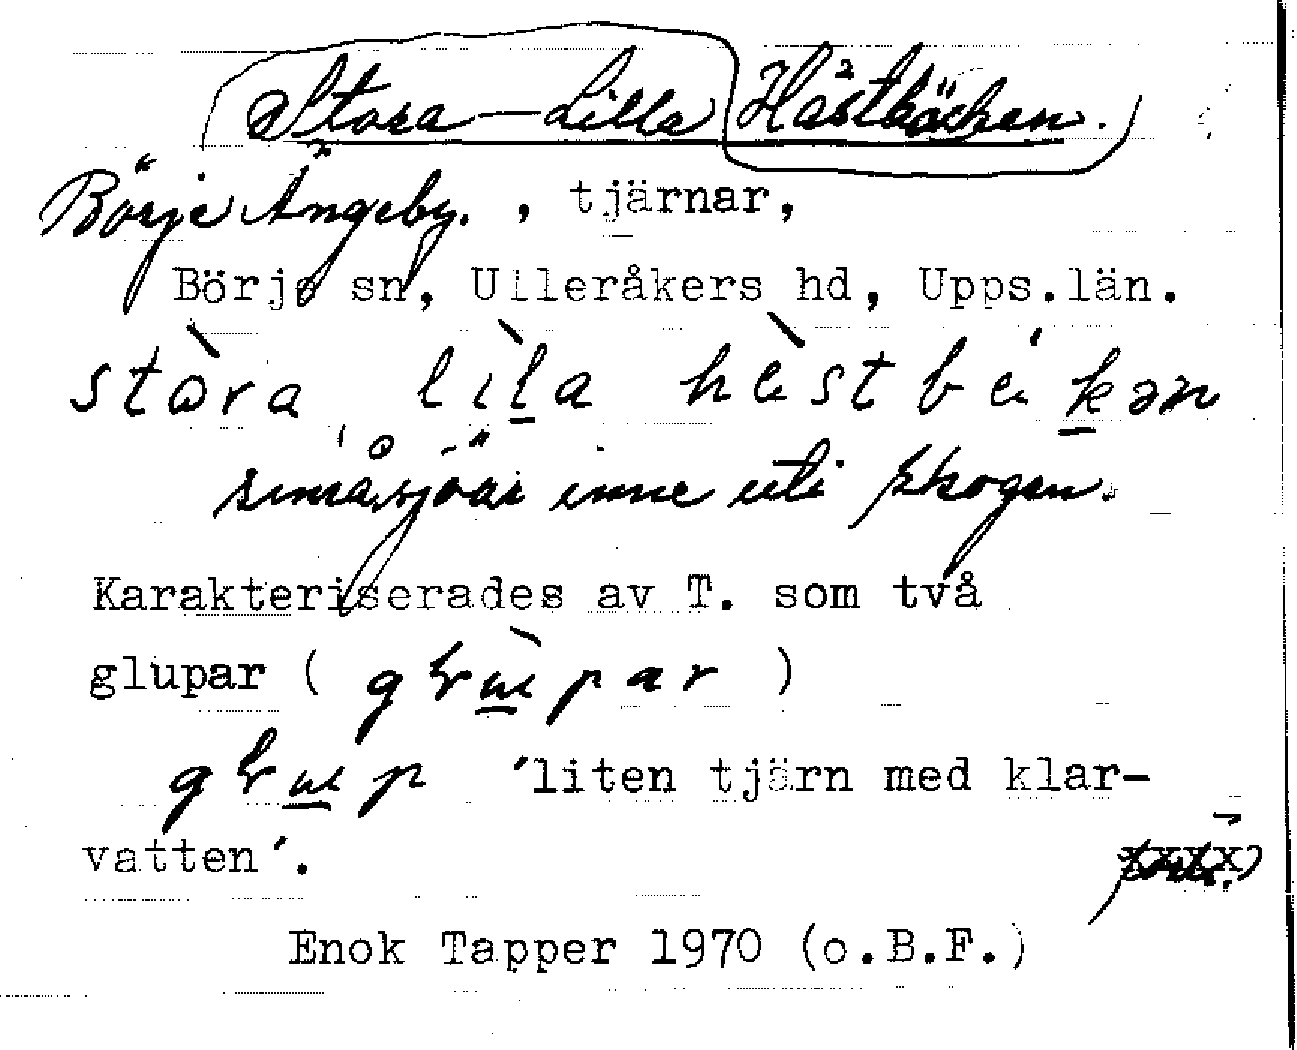 Stora – Lilla Hästbäcken.
Börje Ängeby. , tjärnar,
Börje sn, Ulleråkers hd, Upps.län.
småsjöar inne uti skogen.
Karakteriserades av T. som två
glupar ( )
'liten tjärn med klar-
vatten'.
Enok Tapper 1970 (o.B.F.)